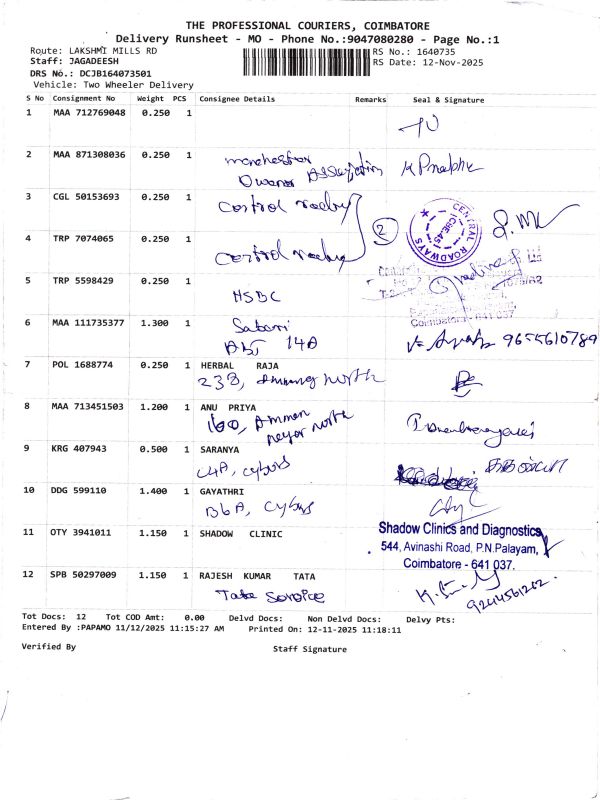 THE PROFESSIONAL COURIERS, COIMBATORE
Delivery Runsheet - MO - Phone No.:9047080280 - Page No.:1
Route: LAKSHMI MILLS RD
RS No.: 1640735
Staff: JAGADEESH
RS Date: 12-Nov-2025
DRS No.: DCJB164073501
Vehicle: Two Wheeler Delivery
S No Consignment No Weight PCS Consignee Details Remarks Seal & Signature
1 MAA 712769048 0.250 1
2 MAA 871308036 0.250 1
manchester
Owner Association
3 CGL 50153693 0.250 1
Control
2
CENTRAL ROADWAYS
CBE-45
4 TRP 7074065 0.250 1
Control
5 TRP 5598429 0.250 1
HSBC
Coimbatore - 641 037
6 MAA 111735377 1.300 1 Sabari
14A
9655610789
7 POL 1688774 0.250 1 HERBAL RAJA
238, north
8 MAA 713451503 1.200 1 ANU PRIYA
160, Amman
nagar north
9 KRG 407943 0.500 1 SARANYA
C4A, cybus
10 DDG 599110 1.400 1 GAYATHRI
B6A, cybus
11 OTY 3941011 1.150 1 SHADOW CLINIC
Shadow Clinics and Diagnostics
544, Avinashi Road, P.N.Palayam,
Coimbatore - 641 037.
12 SPB 50297009 1.150 1 RAJESH KUMAR TATA
Tata Service
9244561262
Tot Docs: 12 Tot COD Amt: 0.00 Delvd Docs: Non Delvd Docs: Delvy Pts:
Entered By :PAPAMO 11/12/2025 11:15:27 AM Printed On: 12-11-2025 11:18:11
Verified By Staff Signature